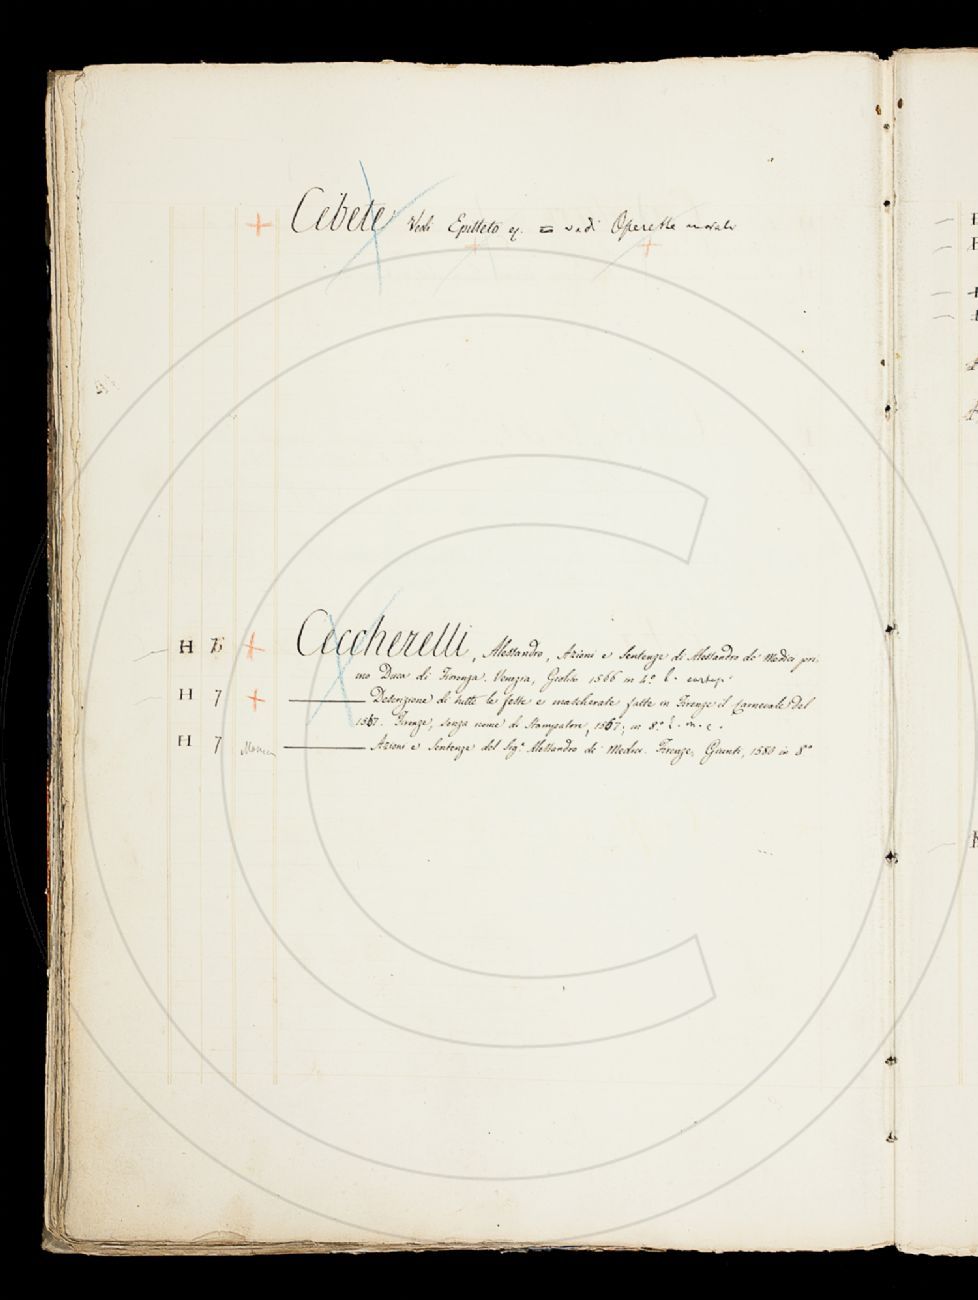 Cebete Vedi Epitteto ec. = vedi Operette morali
H 7 Ceccherelli, Alessandro, Azioni e Sentenze di Alessandro de Medici pri-
mo Duca di Fiorenza. Venezia, Giolito 1566 in 4.º
H 7 Descrizione di tutte le feste e mascherate fatte in Firenze il Carnevale del
1567. Firenze, senza nome di Stampatore, 1567; in 8.º
H 7 Azioni e Sentenze del Sig.r Alessandro de Medici. Firenze, Giunti, 1580 in 8.º